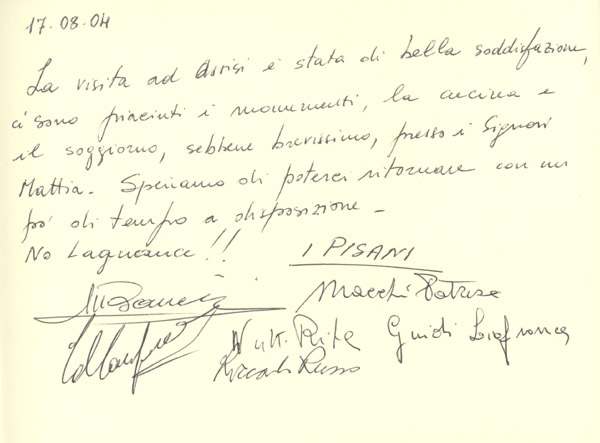 17.08.04
La visita ad Assisi è stata di bella soddisfazione,
ci sono piaciuti i monumenti, la cucina e
il soggiorno, sebbene brevissimo, presso i Signori
Mattia. Speriamo di poterci ritornare con un
pò di tempo a disposizione.
No Lagnanza!!
I PISANI
Macchi Patrizia
Rita Guidi Lafranca
Riccardo Russo